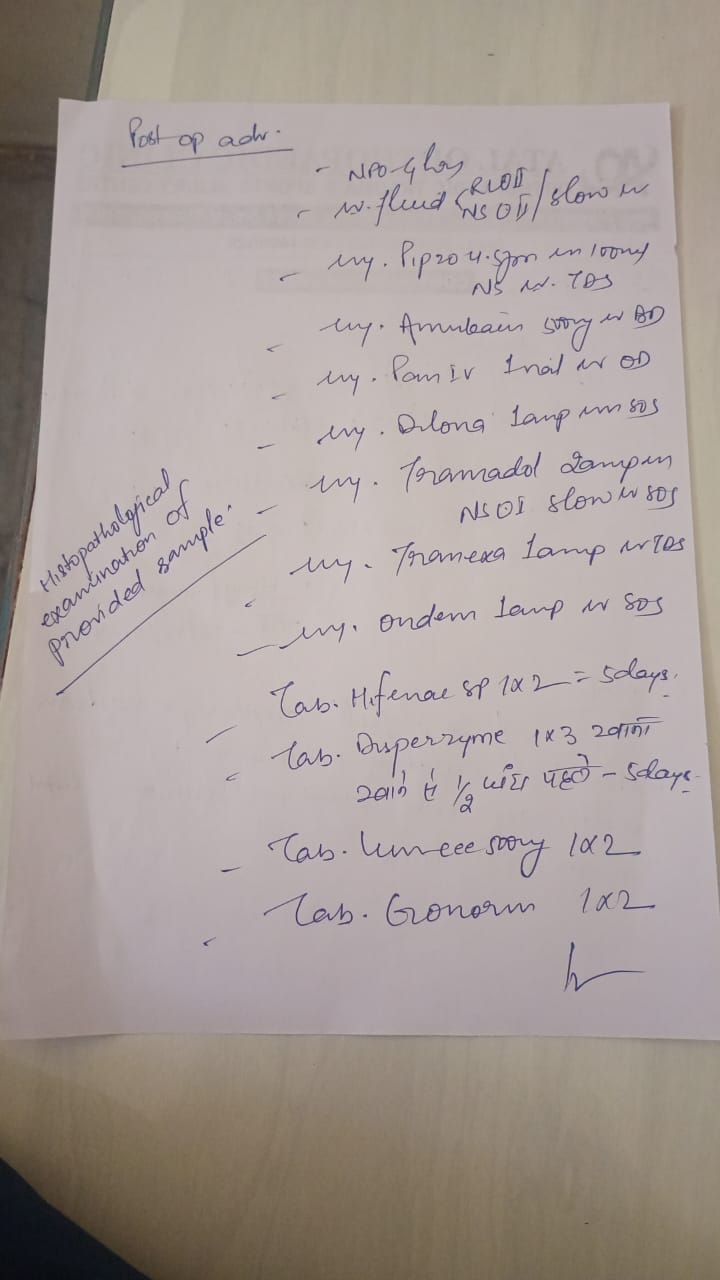 Post op adv.
- NPO-4 hrs
- iv. fluid < RL OII
NS OII / slow iv
- inj. Pipzo 4.5gm in 100ml
NS iv. TDS
- inj. Amikacin 500mg iv BD
- inj. Pan IV 1 vial iv OD
- inj. Dilona 1amp im sos
- inj. Tramadol 2amp in
NS OI slow iv sos
- inj. Tranexa 1amp iv TDS
- inj. ondem 1amp iv sos
- Tab. Hifenac SP 1x2 = 5days.
- Tab. Disperzyme 1x3 खाना
खाने से 1/2 घंटा पहले - 5days.
- Tab. Limcee 500mg 1x2
- Tab. Gonorm 1x2
Histopathological
examination of
provided sample.